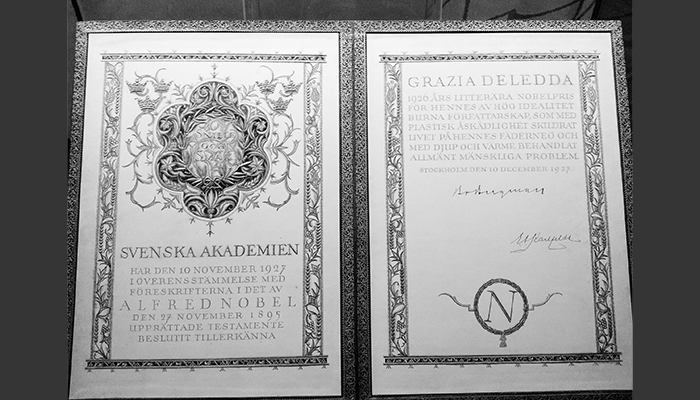 SVENSKA AKADEMIEN
HAR DEN 10 NOVEMBER 1927
I ÖVERENSSTÄMMELSE MED
FÖRESKRIFTERNA I DET AV
ALFRED NOBEL
DEN 27 NOVEMBER 1895
UPPRÄTTADE TESTAMENTE
BESLUTIT TILLERKÄNNA
GRAZIA DELEDDA
1926 ÅRS LITTERÄRA NOBELPRIS
FÖR HENNES AV HÖG IDEALITET
BURNA FÖRFATTARSKAP, SOM MED
PLASTISK ÅSKÅDLIGHET SKILDRAT
LIVET PÅ HENNES FÄDERNEÖ OCH
MED DJUP OCH VÄRME BEHANDLAT
ALLMÄNT MÄNSKLIGA PROBLEM.
STOCKHOLM DEN 10 DECEMBER 1927.
N